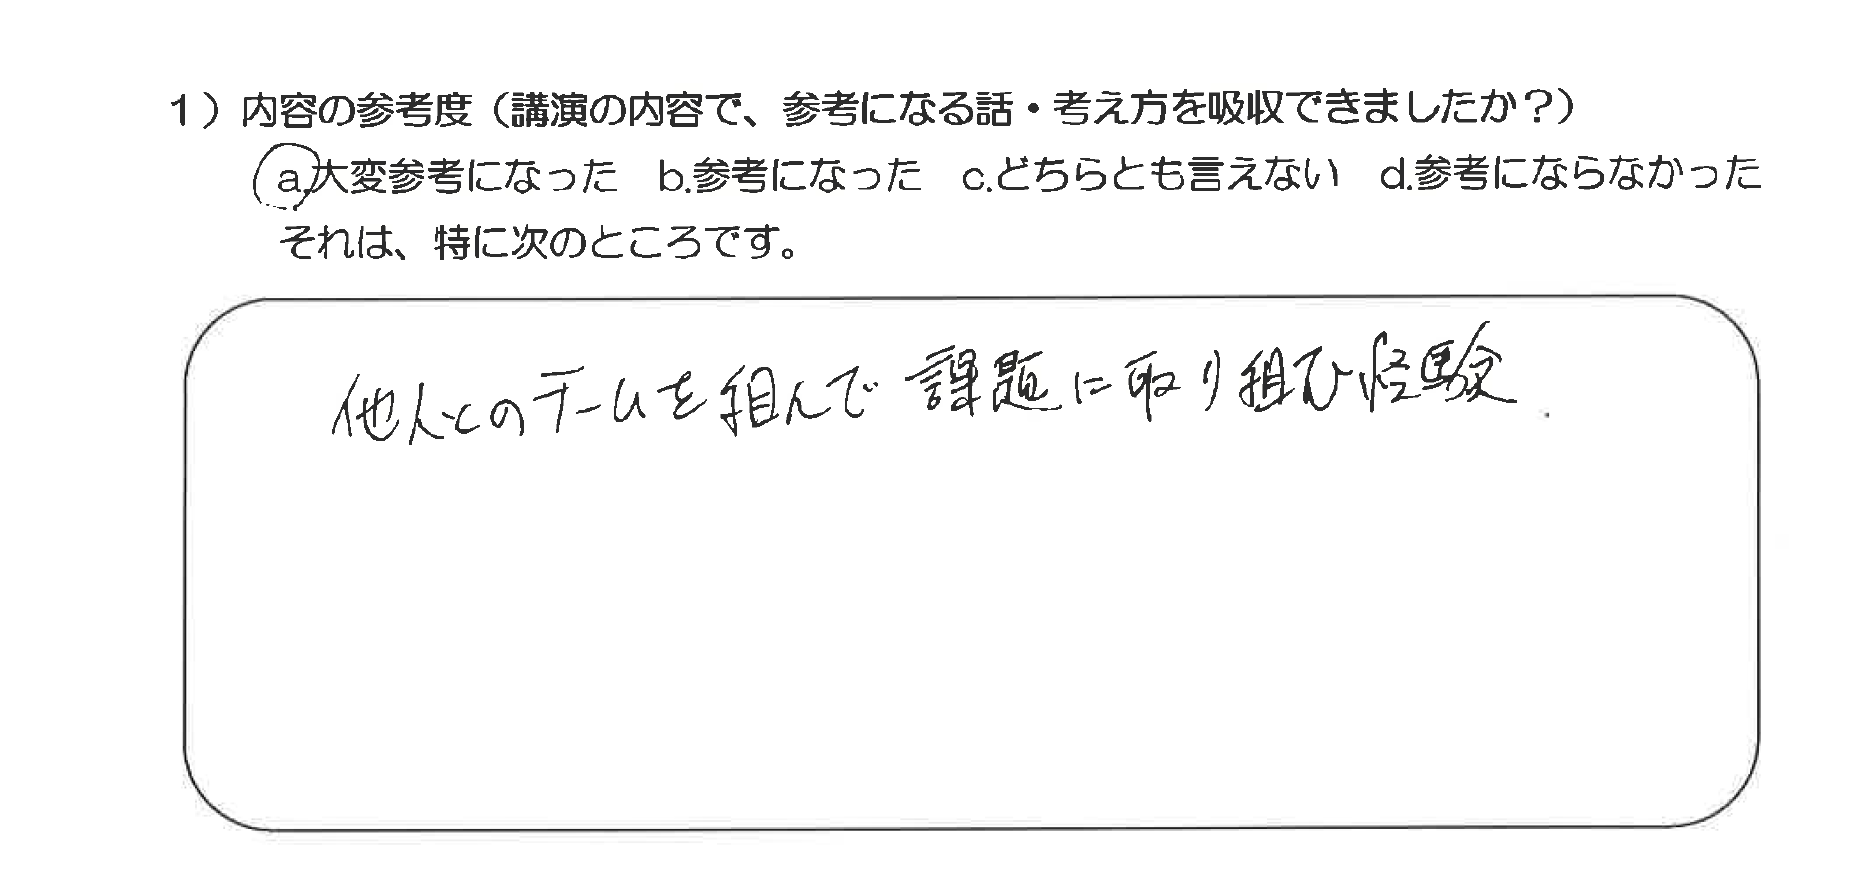 1）内容の参考度（講演の内容で、参考になる話・考え方を吸収できましたか？）
a.大変参考になった　b.参考になった　c.どちらとも言えない　d.参考にならなかった
それは、特に次のところです。
他人とのチームを組んで課題に取り組む経験.